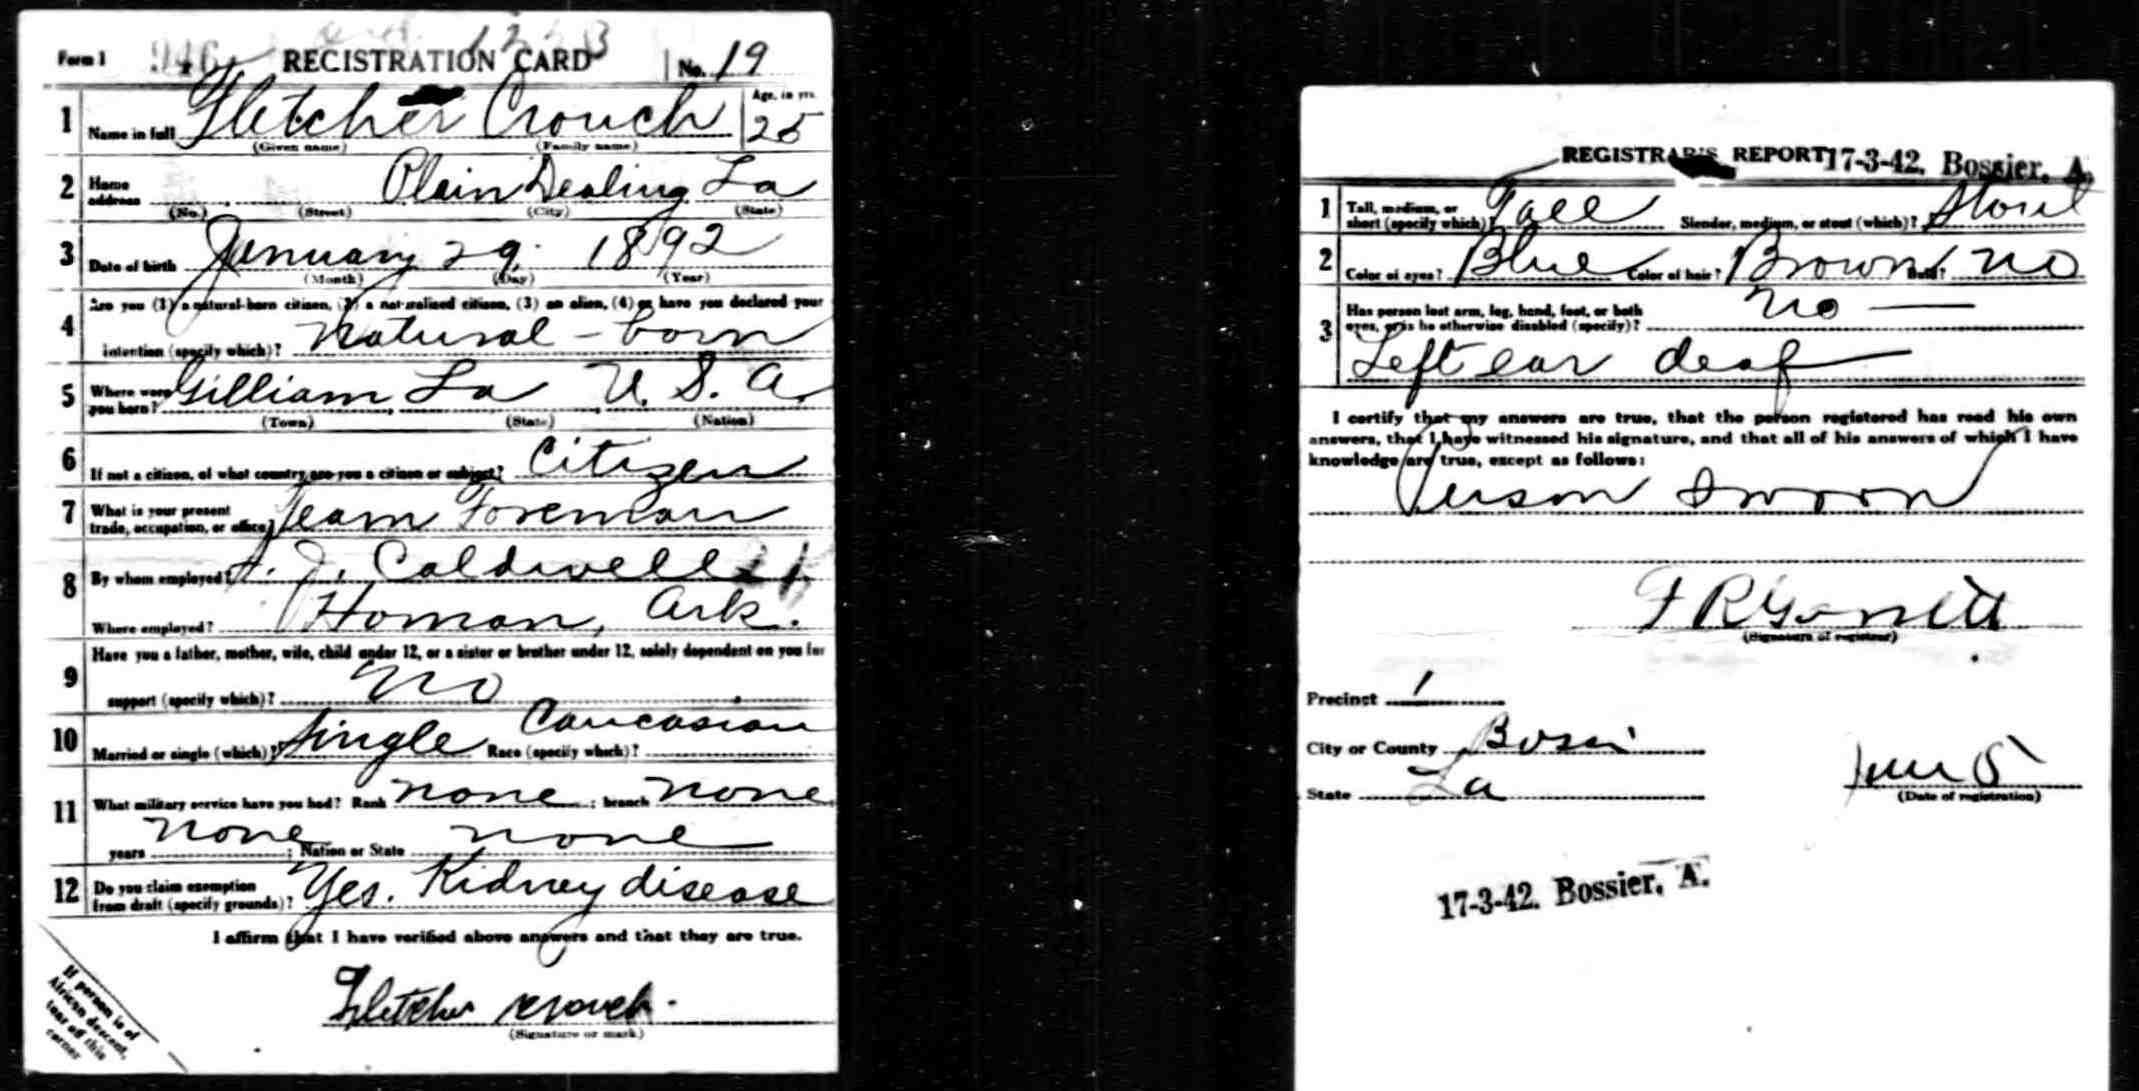 Form 1 946 REGISTRATION CARD No. 19
1 Name in full Fletcher Crouch Age, in yrs. 25
(Given name) (Family name)
2 Home address Plain Dealing La
(No.) (Street) (City) (State)
3 Date of birth January 29 1892
(Month) (Day) (Year)
Are you (1) a natural-born citizen, (2) a naturalized citizen, (3) an alien, (4) or have you declared your
4 intention (specify which)? Natural - born
5 Where were you born? Gilliam La U. S. A.
(Town) (State) (Nation)
6 If not a citizen, of what country are you a citizen or subject? Citizen
7 What is your present trade, occupation, or office? Team Foreman
8 By whom employed? J. Caldwell
Where employed? Homan, Ark.
Have you a father, mother, wife, child under 12, or a sister or brother under 12, solely dependent on you for
9 support (specify which)? No
10 Married or single (which)? Single Race (specify which)? Caucasian
11 What military service have you had? Rank none ; branch none
years none ; Nation or State none
12 Do you claim exemption from draft (specify grounds)? Yes. Kidney disease
I affirm that I have verified above answers and that they are true.
Fletcher Crouch.
(Signature or mark)
If person is of
African descent,
tear off this
corner
REGISTRAR'S REPORT 17-3-42. Bossier, A.
1 Tall, medium, or short (specify which)? Tall Slender, medium, or stout (which)? Stout
2 Color of eyes? Blue Color of hair? Brown Bald? No
3 Has person lost arm, leg, hand, foot, or both eyes, or is he otherwise disabled (specify)? No
Left ear deaf
I certify that my answers are true, that the person registered has read his own
answers, that I have witnessed his signature, and that all of his answers of which I have
knowledge are true, except as follows:
Person Sworn
F R
(Signature of registrar)
Precinct 1
City or County
State La
June 5
(Date of registration)
17-3-42. Bossier, A.